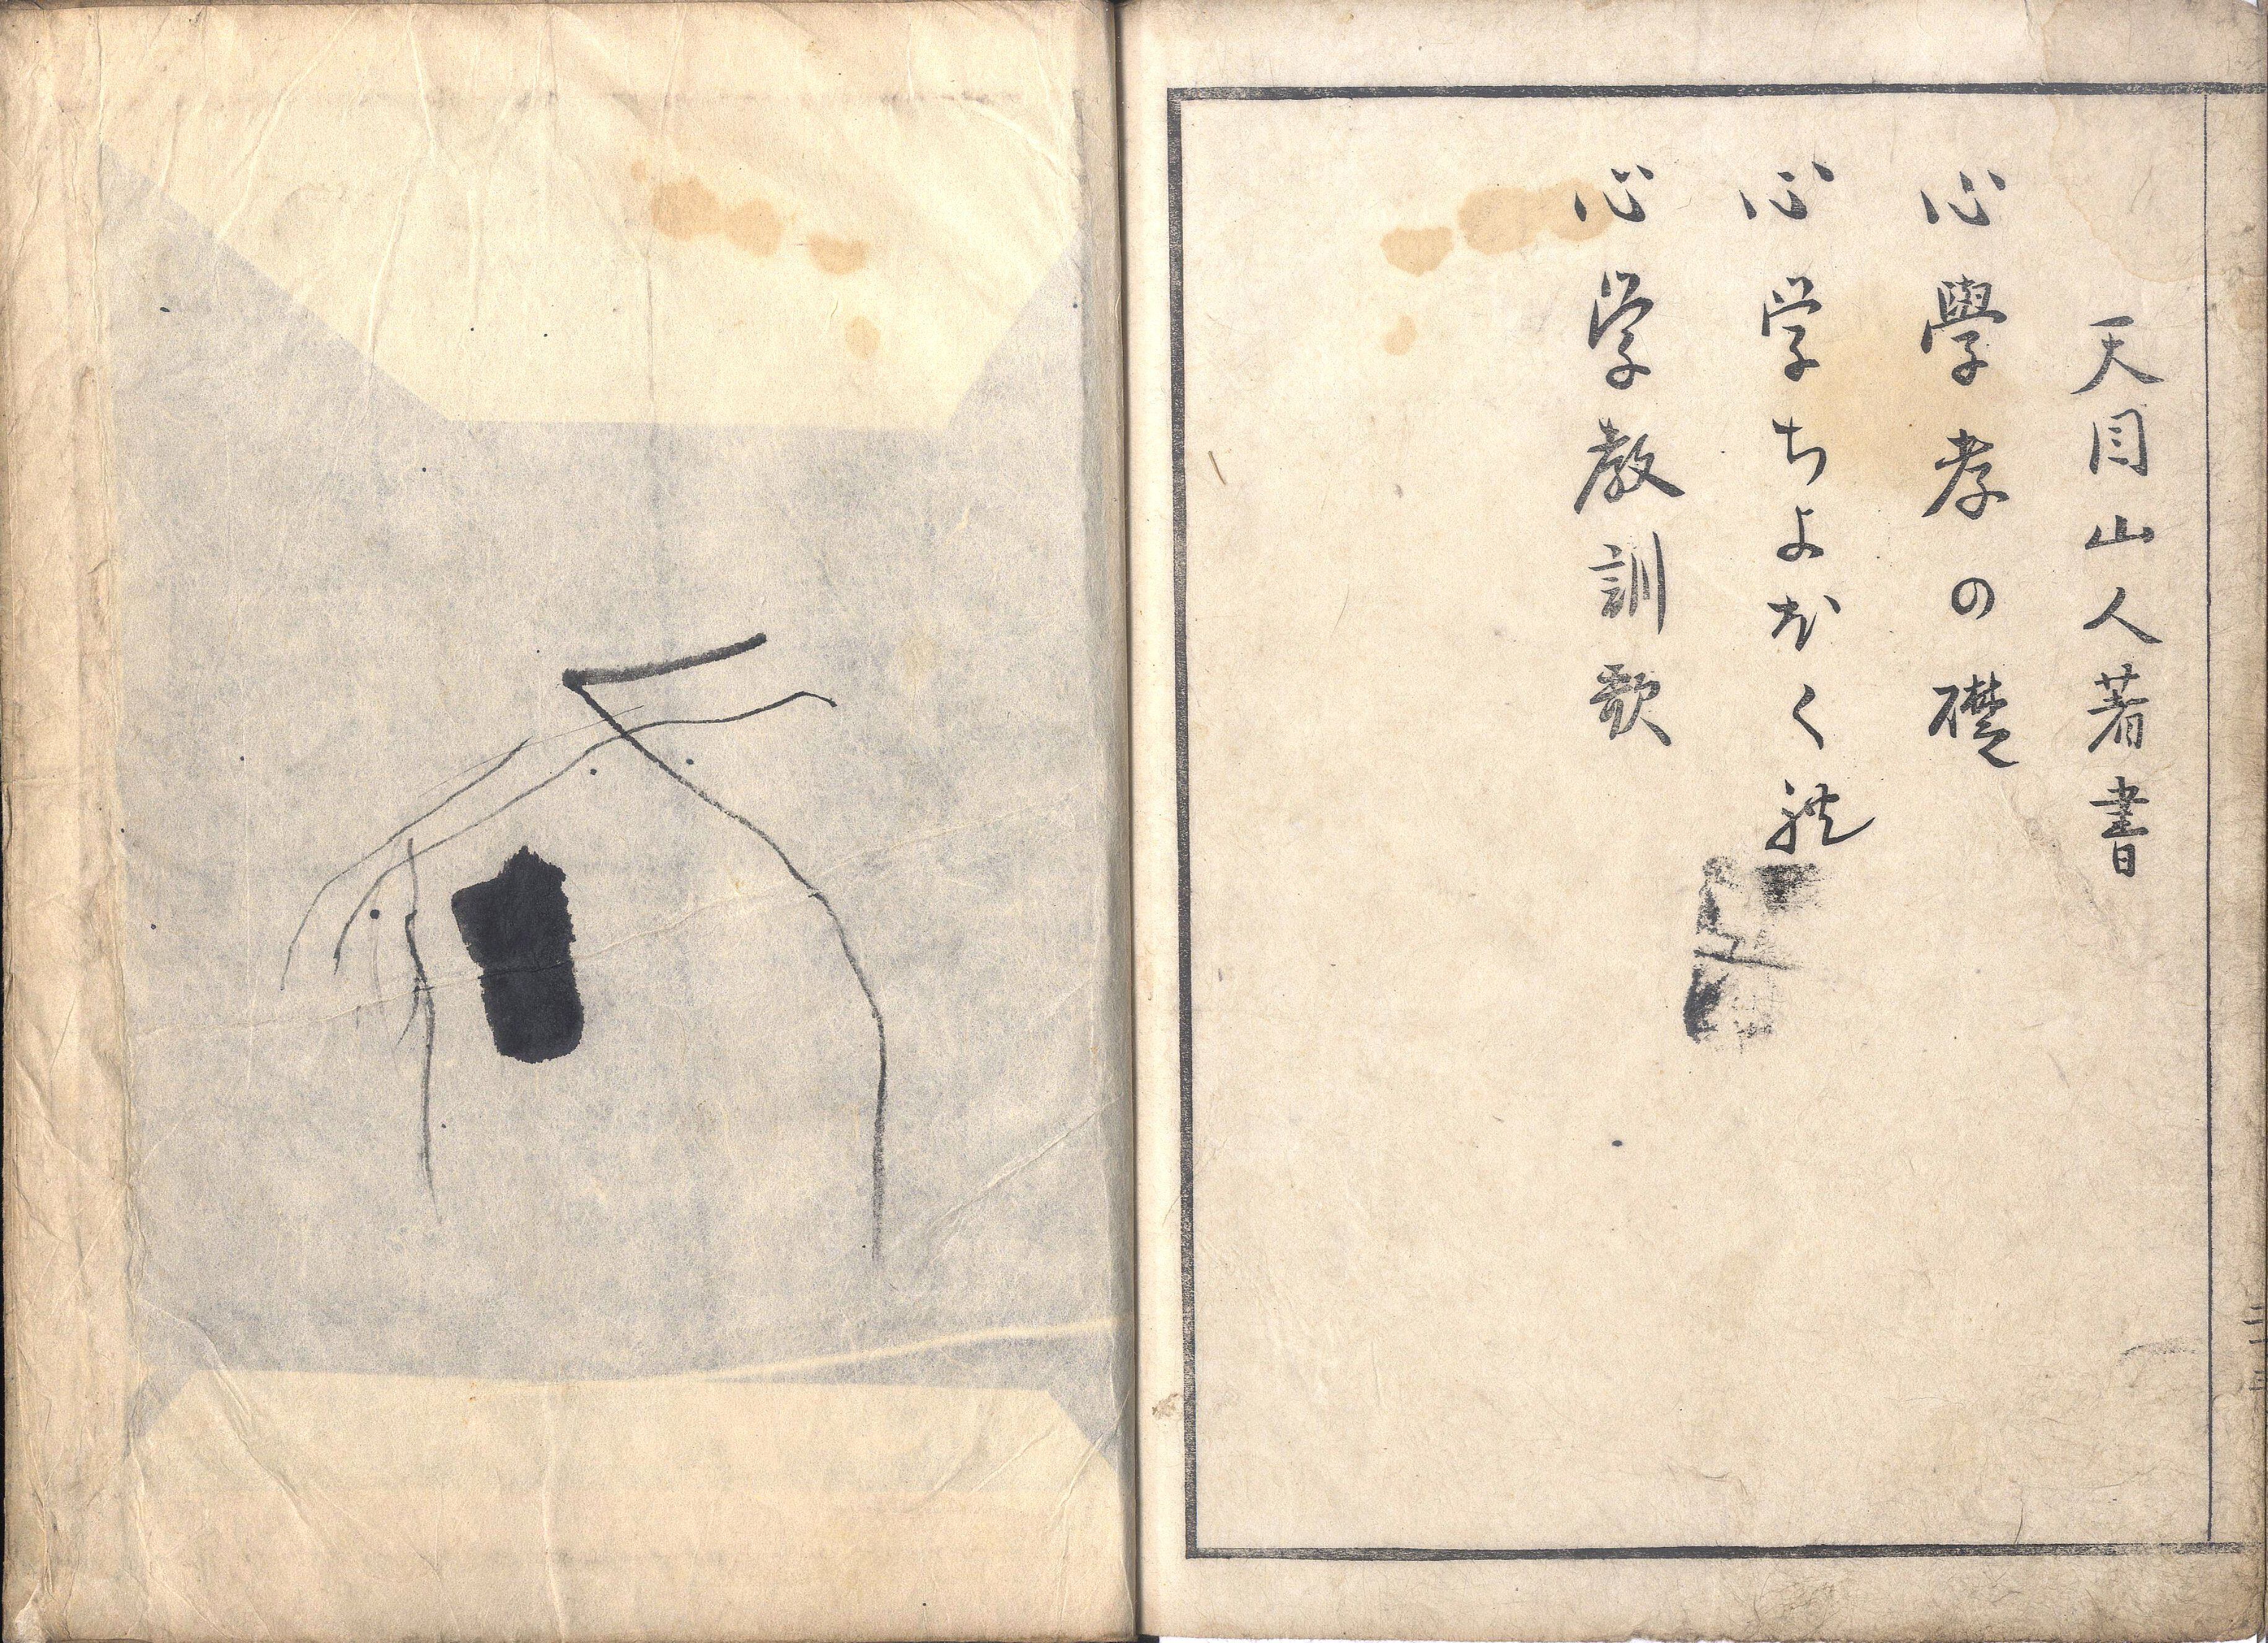 天目山人著書
心學孝の礎
心学ちよぼくれ
心学教訓歌